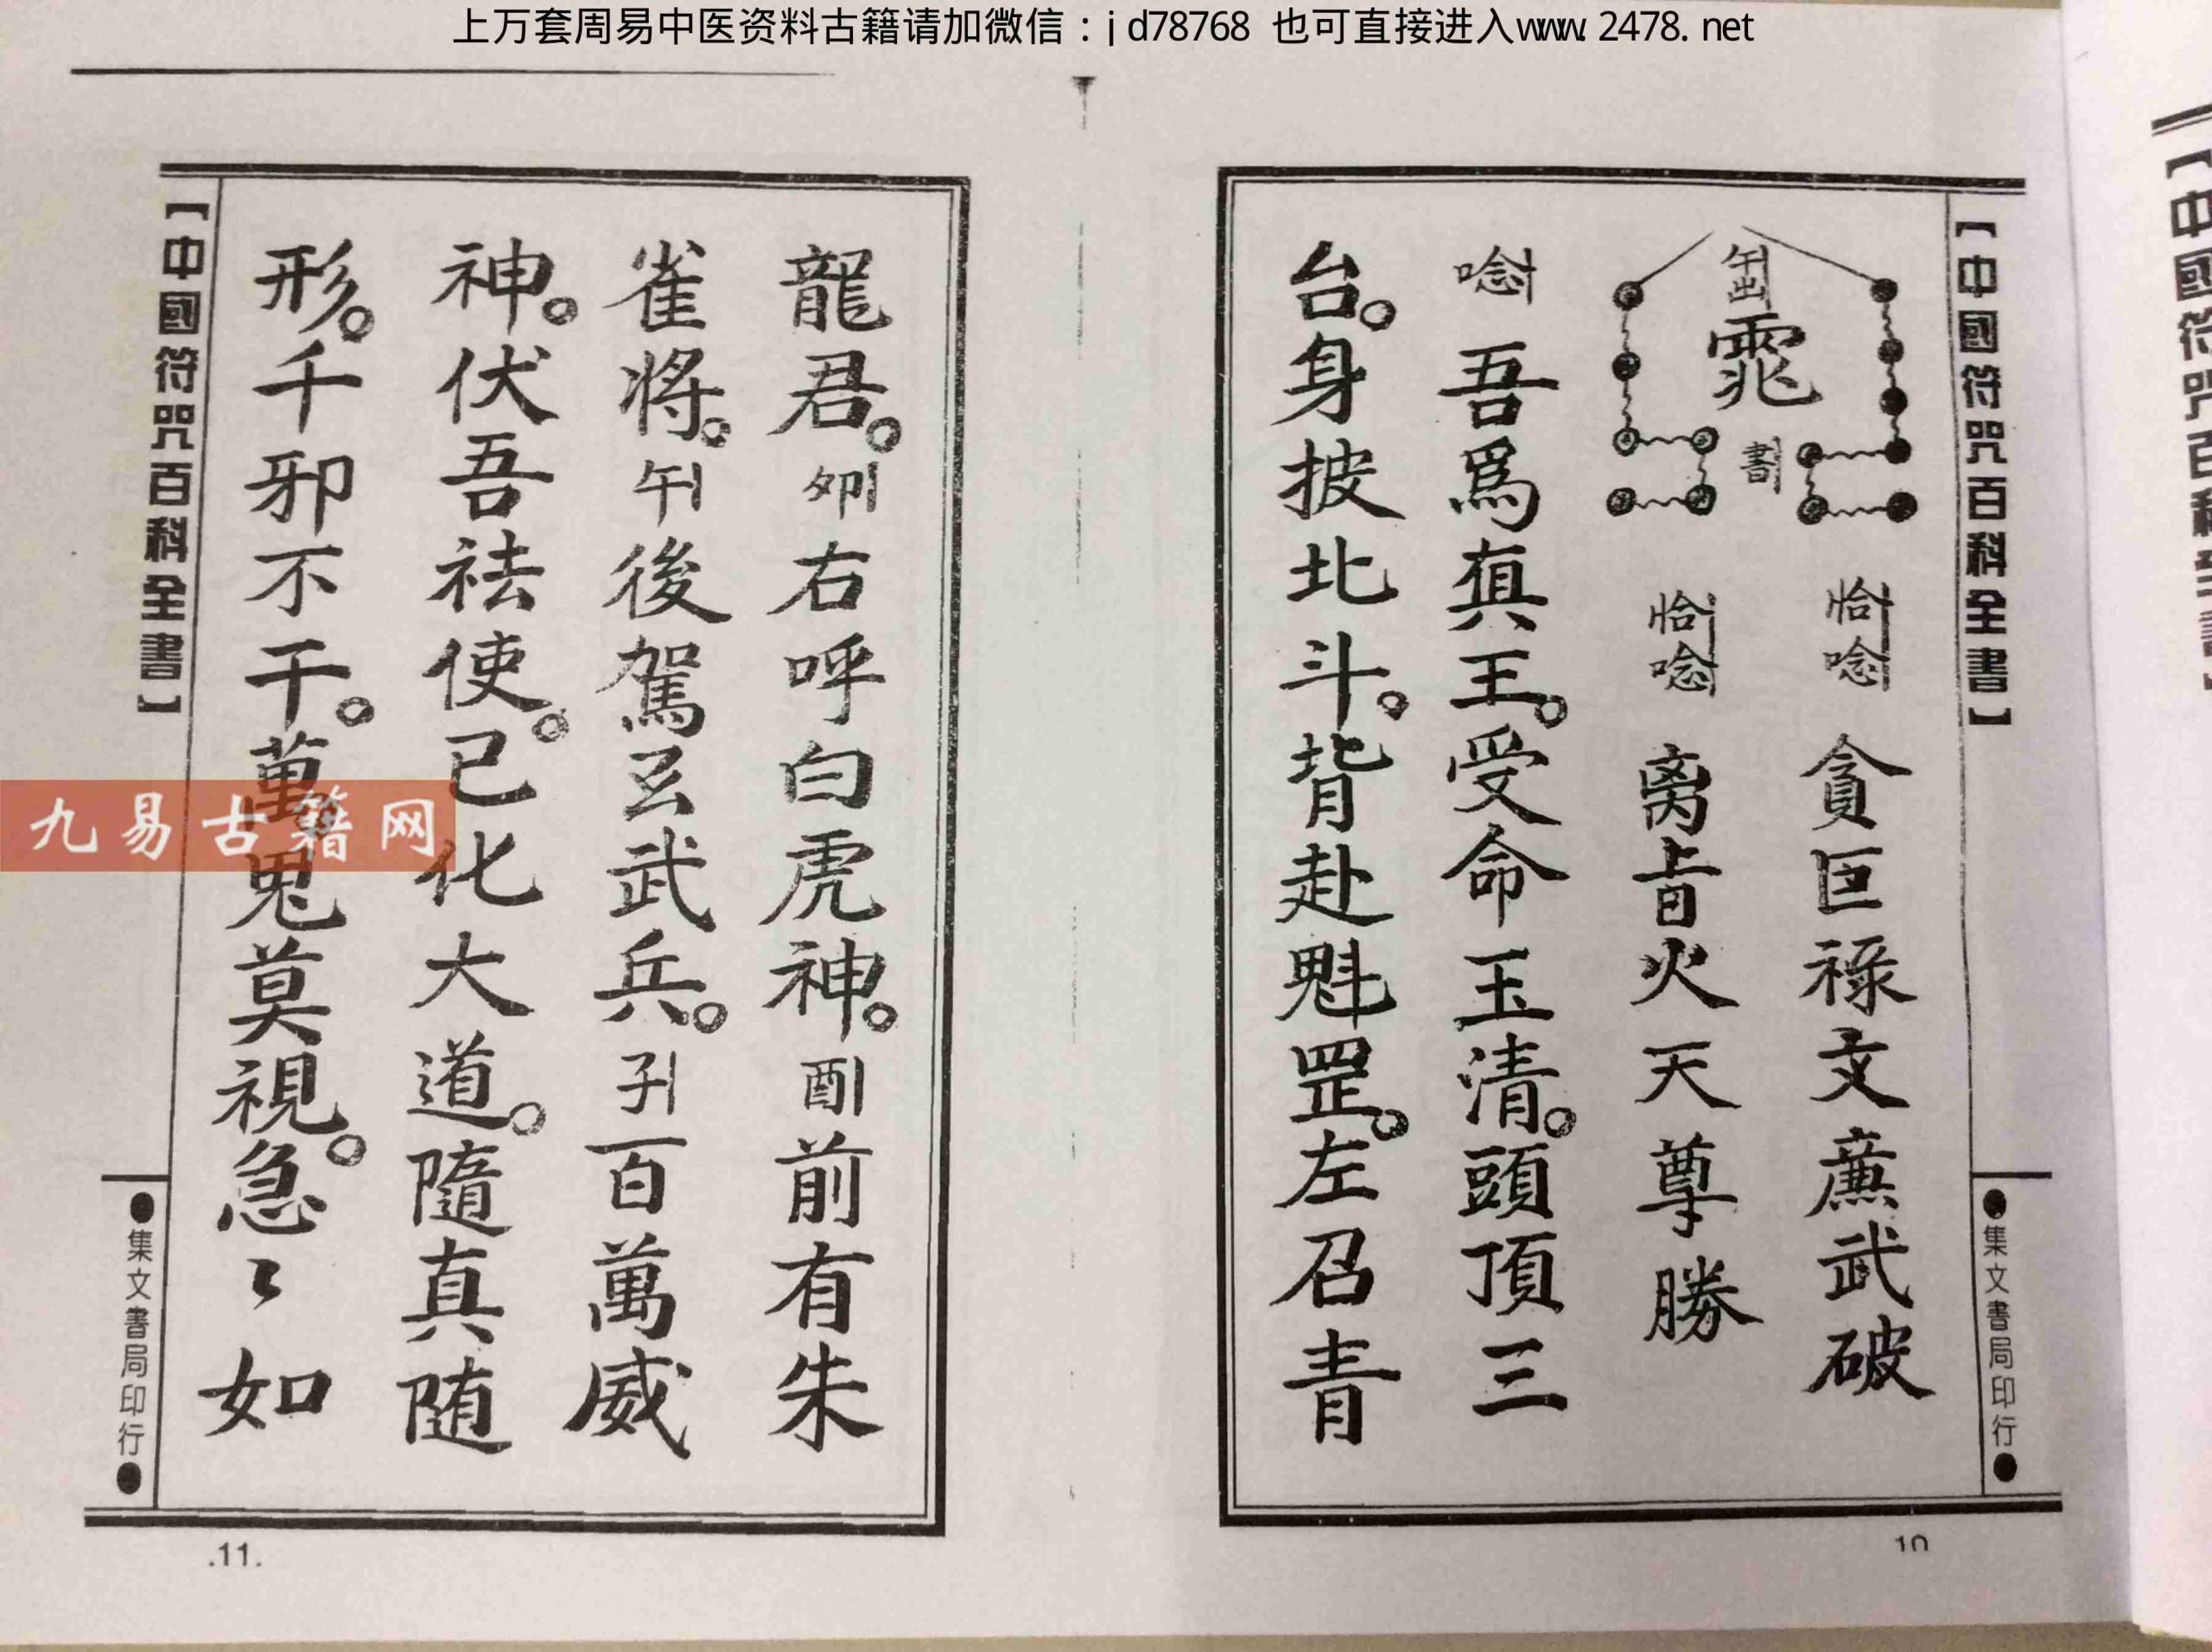 上万套周易中医资料古籍请加微信：jd78768 也可直接进入www.2478.net
【中國符咒百科全書】
●集文書局印行●
午出
書
恰唸
貪巨祿文㢘武破
恰唸
离旨火天尊勝
唸
吾爲真王。受命玉清。頭頂三
台。身披北斗。背赴魁罡。左召青
10
龍君。卯右呼白虎神。酉前有朱
雀将。午後駕玄武兵。子百萬威
神。伏吾祛使。已化大道。隨真随
形。千邪不干。萬鬼莫視。急〻如
【中國符咒百科全書】
●集文書局印行●
.11.
九易古籍网
【中國符咒百